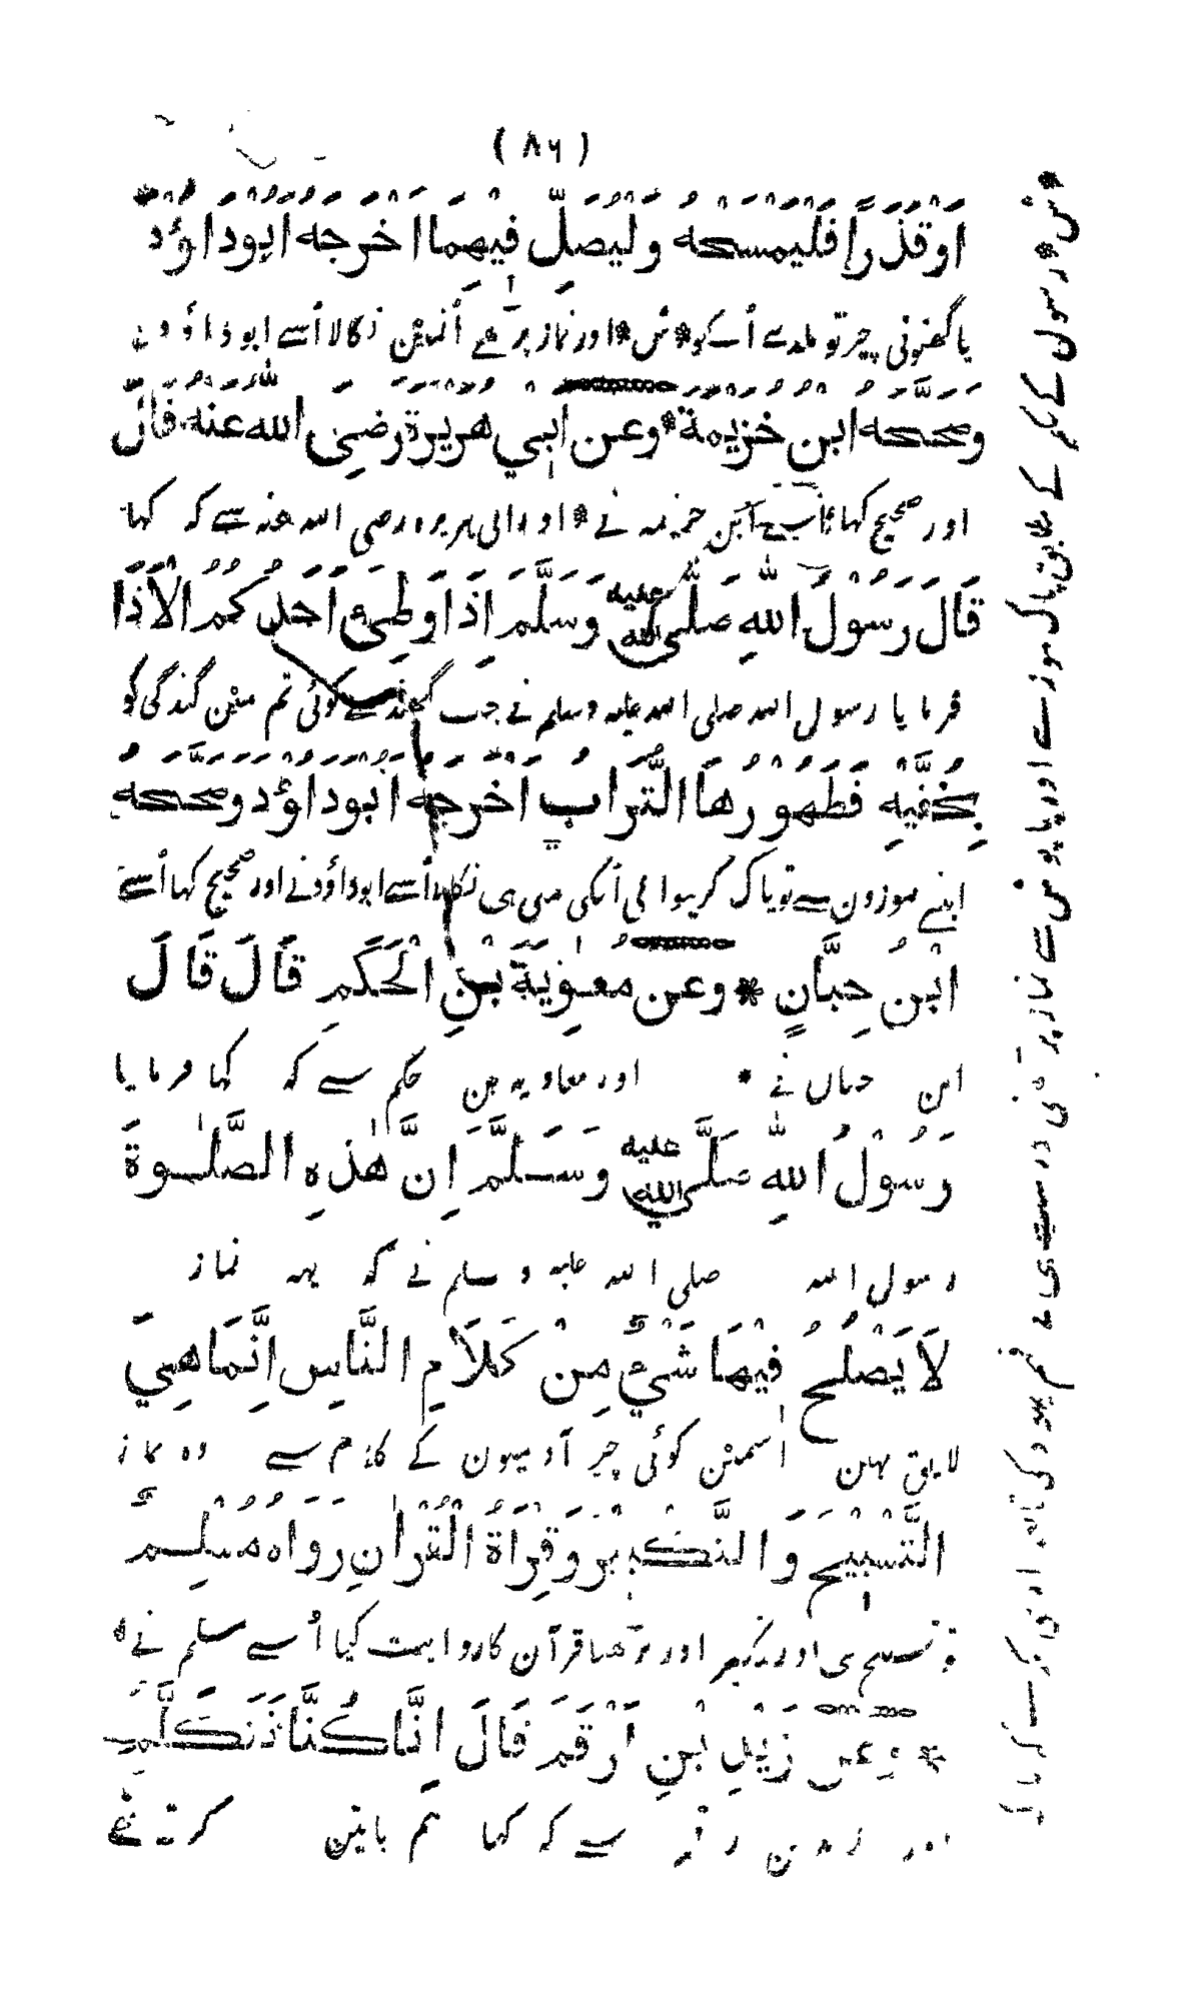 (۸۶)
اَوْقَذَرًا فَلْيَمْسَحْهُ وَلْيُصَلِّ فِيْهِمَا اَخْرَجَهُ اَبُوْدَاوٗدَ
یا گھنونی چیز تو ملدے اُسکو * ش * اور نماز پڑھے اُنمین نکالا اُسے ابوداؤد نے
وَصَحَّحَهُ ابْنُ خُزَيْمَةَ * وَعَنْ اَبِيْ هُرَيْرَةَ رَضِيَ اللّٰهُ عَنْهُ قَالَ
اور صحیح کہا ابن خزیمہ نے * اور ابی ہریرہ رضی اللہ عنہ سے کہ کہا
قَالَ رَسُوْلُ اللّٰهِ صَلَّى اللّٰهُ عَلَيْهِ وَسَلَّمَ اِذَا وَطِئَ اَحَدُكُمُ الْاَذٰى
فرمایا رسول اللہ صلی اللہ علیہ وسلم نے جب کوئی تم مین گندگی کو
بِخُفَّيْهِ فَطَهُوْرُهَا التُّرَابُ اَخْرَجَهُ اَبُوْدَاوٗدَ وَصَحَّحَهُ
اپنے موزون سے تو پاک کرنیوالی اُسکی مٹی ہی نکالا اُسے ابوداؤد نے اور صحیح کہا اُسے
ابْنُ حِبَّانٍ * وَعَنْ مُعٰوِيَةَ بْنِ الْحَكَمِ قَالَ قَالَ
ابن حبان نے * اور معاویہ بن حکم سے کہ کہا فرمایا
رَسُوْلُ اللّٰهِ صَلَّى اللّٰهُ عَلَيْهِ وَسَلَّمَ اِنَّ هٰذِهِ الصَّلٰوةَ
رسول اللہ صلی اللہ علیہ و سلم نے کہ یہہ نماز
لَا يَصْلُحُ فِيْهَا شَيْءٌ مِنْ كَلَامِ النَّاسِ اِنَّمَا هِيَ
لایق نہین اسمین کوئی چیز آدمیون کے کلام سے وہ نماز
التَّسْبِيْحُ وَالتَّكْبِيْرُ وَقِرَاَةُ الْقُرْاٰنِ رَوَاهُ مُسْلِمٌ
تو تسبیح ہی اور تکبیر اور پڑھنا قرآن کا روایت کیا اُسے مسلم نے *
* وَعَنْ زَيْدِ بْنِ اَرْقَمَ قَالَ اِنَّا كُنَّا نَتَكَلَّمُ
اور سے کہ کہا ہم باتین کرتے تھے
* ش * رسول کے کے مطابق پاک موزے اور پاپوش سے نماز پڑھنی درست ہی